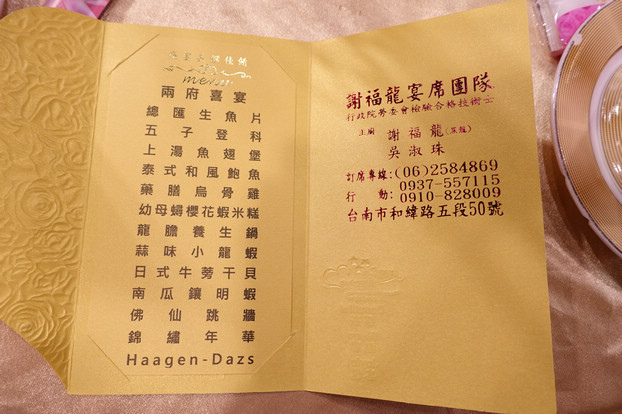 menu
兩府喜宴
總匯生魚片
五子登科
上湯魚翅堡
泰式和風鮑魚
藥膳烏骨雞
幼母蟳櫻花蝦米糕
龍膽養生鍋
蒜味小龍蝦
日式牛蒡干貝
南瓜鑲明蝦
佛仙跳牆
錦繡年華
Haagen-Dazs
謝福龍宴席團隊
行政院勞委會檢驗合格技術士
主廚 謝福龍
吳淑珠
訂席專線:(06)2584869
0937-557115
行動:0910-828009
台南市和緯路五段50號